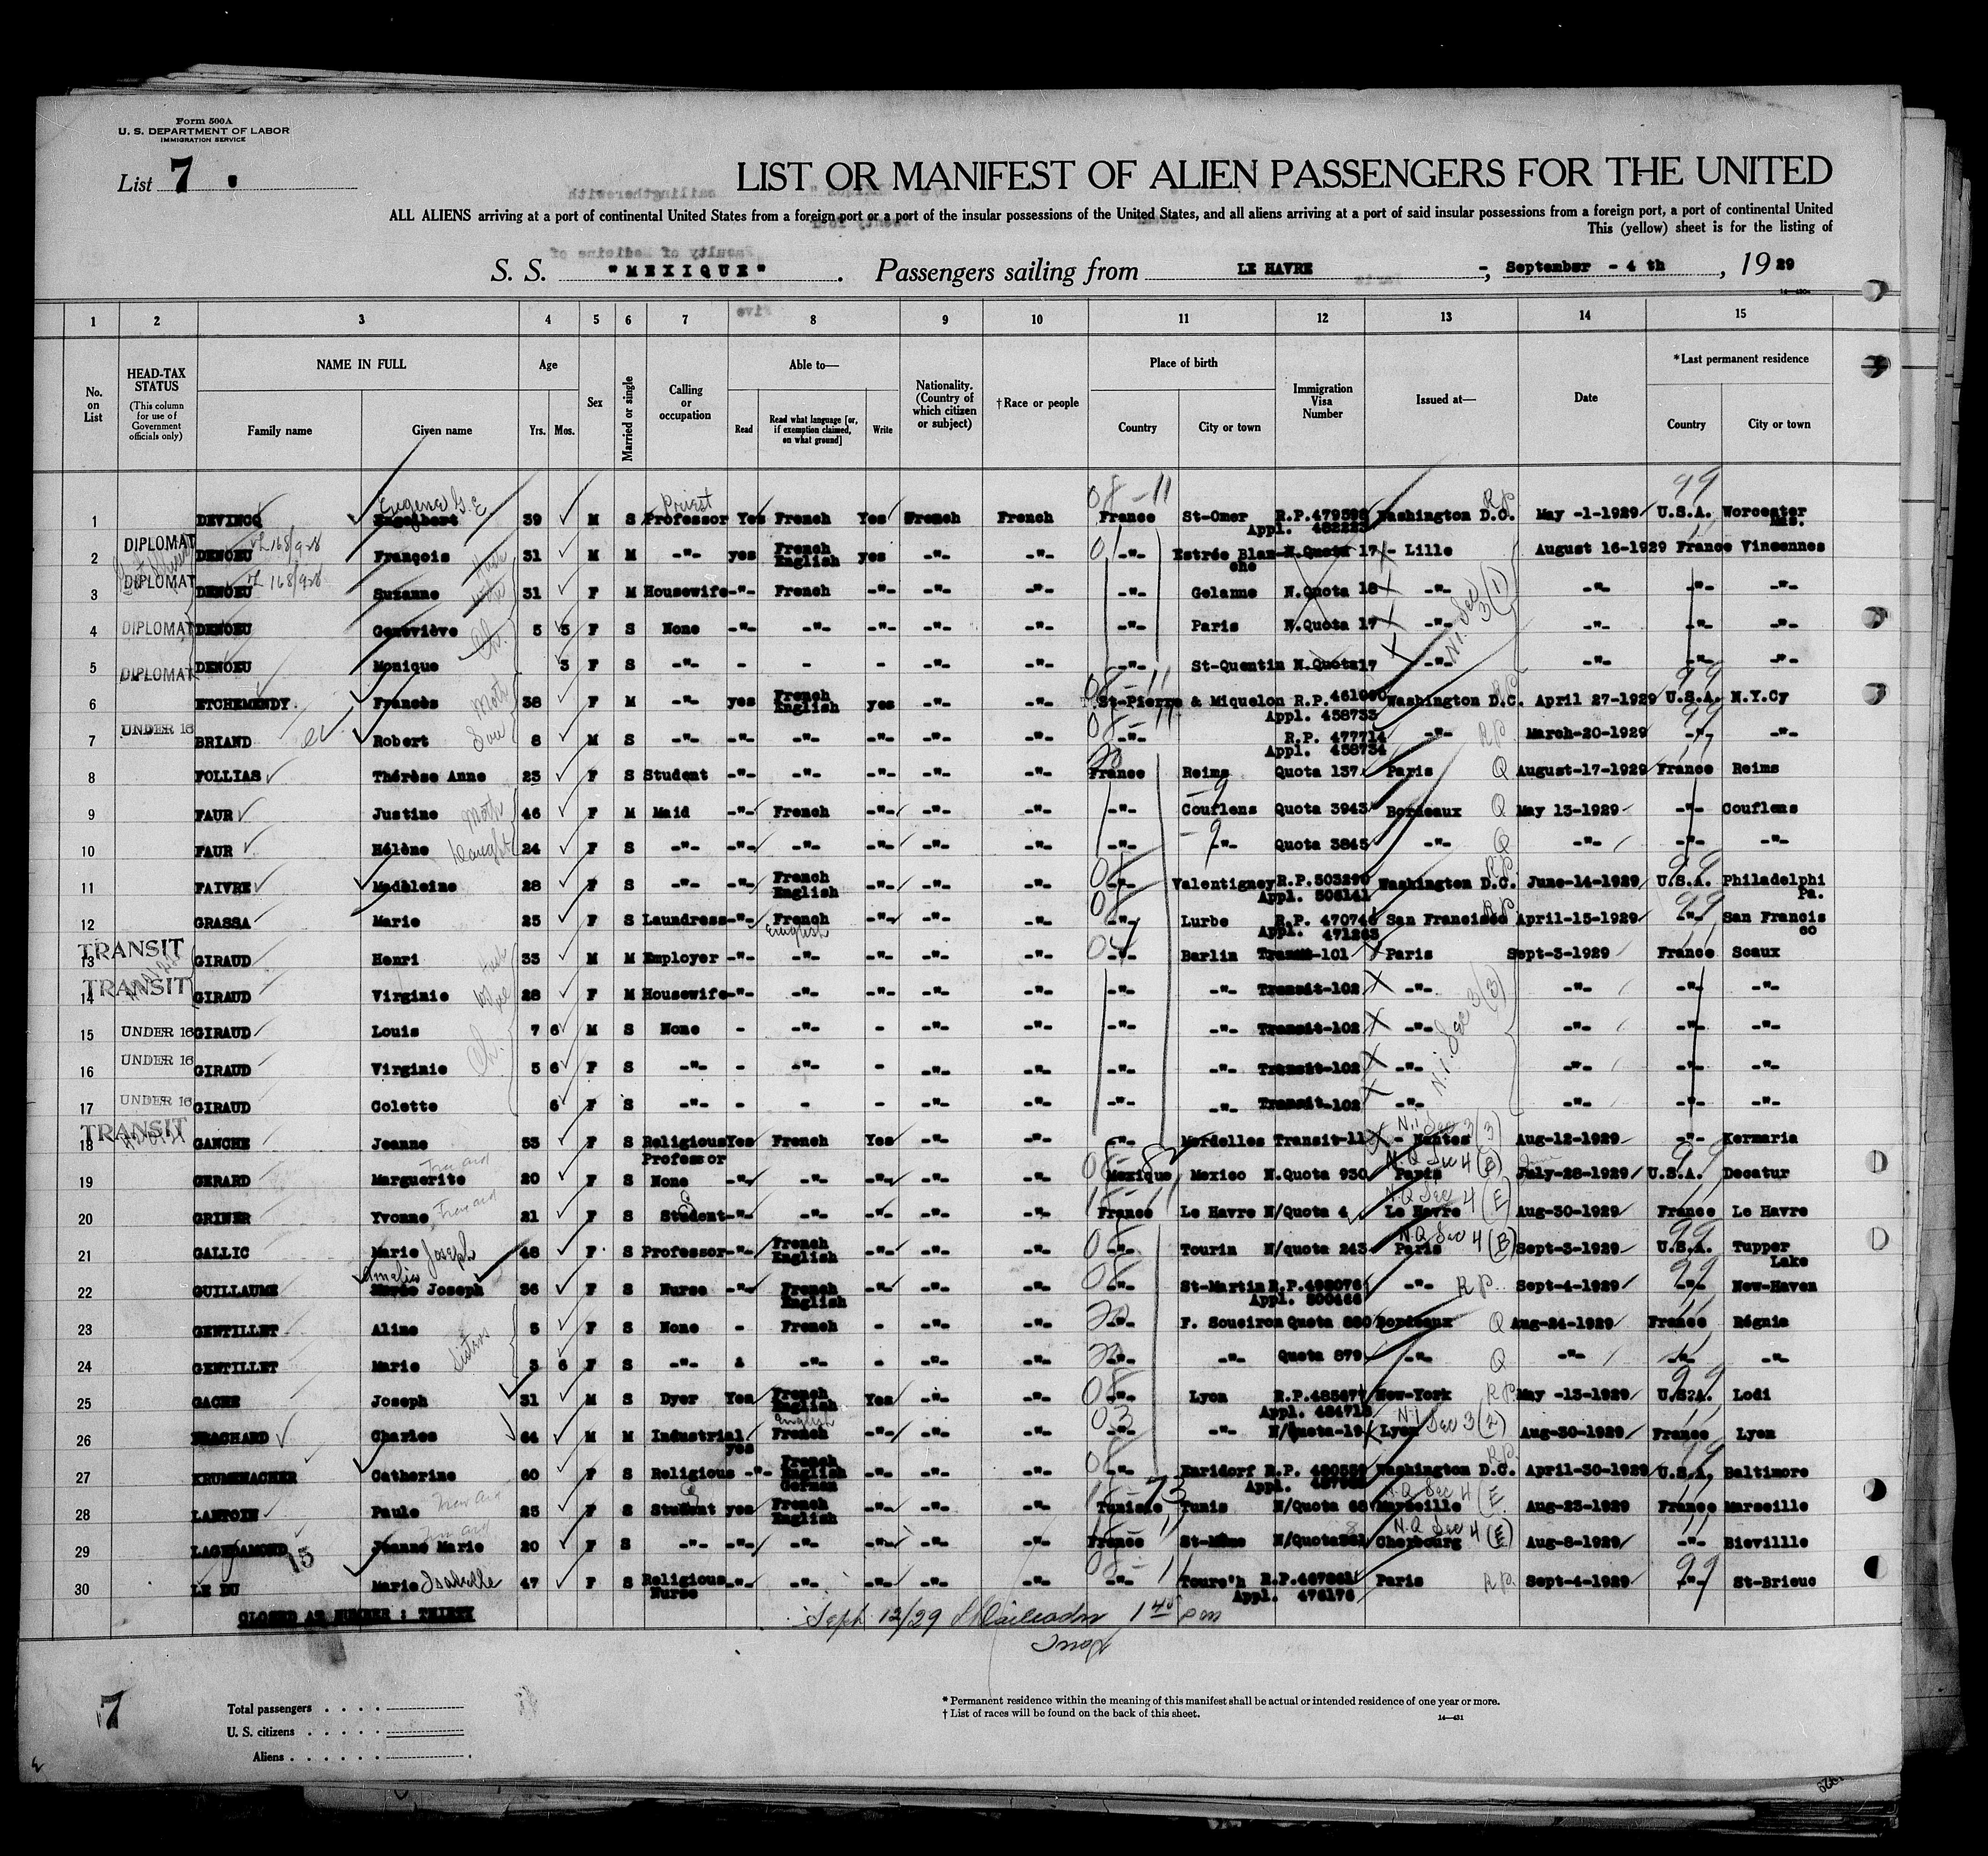 Form 500A
U. S. DEPARTMENT OF LABOR
IMMIGRATION SERVICE
List 7
LIST OR MANIFEST OF ALIEN PASSENGERS FOR THE UNITED
ALL ALIENS arriving at a port of continental United States from a foreign port or a port of the insular possessions of the United States, and all aliens arriving at a port of said insular possessions from a foreign port, a port of continental United
This (yellow) sheet is for the listing of
S. S. "MEXIQUE". Passengers sailing from LE HAVRE -, September - 4 th, 1929
1 2 3 4 5 6 7 8 9 10 11 12 13 14 15
No. on List
HEAD-TAX STATUS (This column for use of Government officials only)
NAME IN FULL Family name Given name
Age Yrs. Mos.
Sex
Married or single
Calling or occupation
Able to— Read Read what language [or, if exemption claimed, on what ground] Write
Nationality. (Country of which citizen or subject)
†Race or people
Place of birth Country City or town
Immigration Visa Number
Issued at—
Date
*Last permanent residence Country City or town
1 DEVINCQ Eugene G. E. 39 M S Priest Professor Yes French Yes French French France St-Omer R.P. Appl. Washington D.C. RP May -1-1929 U.S.A. Worcester Mas.
2 DIPLOMAT DENOEU François 31 M M -"- yes French English yes -"- -"- -"- Estrée Blanche N.Quota 17 - Lille August 16-1929 France Vincennes
3 DIPLOMAT DENOEU Suzanne wife 31 F M Housewife -"- French -"- -"- -"- -"- Gelanne N.Quota 18 -"- -"- -"- -"-
4 DIPLOMAT DENOEU Geneviève Ch. 5 5 F S None -"- -"- -"- -"- -"- -"- Paris N.Quota 17 -"- -"- -"- -"-
5 DIPLOMAT DENOEU Monique 3 F S -"- - - - -"- -"- -"- St-Quentin N.Quota 17 -"- -"- -"- -"-
6 ETCHEMENDY Francès Moth 38 F M -"- yes French English yes -"- -"- St-Pierre & Miquelon R.P. Appl. 458733 Washington D.C. April 27-1929 U.S.A. N.Y.Cy
7 UNDER 16 BRIAND Robert Son 8 M S -"- -"- -"- -"- -"- -"- -"- R.P. 477714 Appl. 458734 -"- RP March-20-1929 -"- -"-
8 FOLLIAS Thérèse Anne 23 F S Student -"- -"- -"- -"- -"- France Reims Quota 137 Paris Q August-17-1929 France Reims
9 FAUR Justine Moth 46 F M Maid -"- French -"- -"- -"- -"- Couflens Quota 3943 Bordeaux Q May 13-1929 -"- Couflens
10 FAUR Hélène Daught 24 F S -"- -"- -"- -"- -"- -"- -"- -"- Quota 3845 -"- Q -"- -"- -"-
11 FAIVRE Madeleine 28 F S -"- -"- French English -"- -"- -"- -"- Valentigney R.P. Appl. Washington D.C. RP June-14-1929 U.S.A. Philadelphi Pa.
12 GRASSA Marie 25 F S Laundress -"- French English -"- -"- -"- -"- Lurbe R.P. Appl. San Francisco RP April-15-1929 -"- San Francis co
13 TRANSIT GIRAUD Henri 33 M M Employer -"- -"- -"- -"- -"- -"- Barlin Transit-101 Paris Sept-3-1929 France Sceaux
14 TRANSIT GIRAUD Virginie Wife 28 F M Housewife -"- -"- -"- -"- -"- -"- -"- Transit-102 -"- -"- -"- -"-
15 UNDER 16 GIRAUD Louis 7 6 M S None - -"- - -"- -"- -"- -"- Transit-102 -"- -"- -"- -"-
16 UNDER 16 GIRAUD Virginie Ch. 5 6 F S -"- - -"- - -"- -"- -"- -"- Transit-102 -"- -"- -"- -"-
17 UNDER 16 GIRAUD Colette 6 F S -"- - - - -"- -"- -"- -"- Transit-102 -"- -"- -"- -"-
18 TRANSIT GANCHE Jeanne 53 F S Religious Professor Yes French Yes -"- -"- -"- Mordelles Transit-11 - Nantes Aug-12-1929 -"- Kermaria
19 GERARD Marguerite 20 F S None -"- -"- -"- -"- -"- Mexique Mexico N.Quota 930 Paris N.Q Sec 4 (B) July-28-1929 U.S.A. Decatur
20 GRINER Yvonne 21 F S Student -"- -"- -"- -"- -"- France Le Havre N/Quota 4 Le Havre N.Q Sec 4 (E) Aug-30-1929 France Le Havre
21 GALLIC Marie Joseph 48 F S Professor -"- French English -"- -"- -"- -"- Tourin N/quota 243 Paris N.Q Sec 4 (B) Sept-3-1929 U.S.A. Tupper Lake
22 GUILLAUME Amelie Joseph 36 F S Nurse -"- French English -"- -"- -"- -"- St-Martin R.P. Appl. -"- RP Sept-4-1929 -"- New-Haven
23 GENTILLET Aline 5 F S None - French - -"- -"- -"- F. Soueiron Quota 880 Bordeaux Q Aug-24-1929 France Régnie
24 GENTILLET Marie Sisters 3 6 F S -"- -"- - -"- -"- -"- -"- Quota 879 -"- Q -"- -"- -"-
25 GACHE Joseph 31 M S Dyer Yes French English Yes -"- -"- -"- Lyon R.P. Appl. New-York RP May -13-1929 U.S.A. Lodi
26 Charles 64 M M Industrial yes English French -"- -"- -"- -"- -"- N/Quota-19 Lyon N.I Sec 3 (2) Aug-30-1929 France Lyon
27 KRUMENACHER Catherine 60 F S Religious -"- French English German -"- -"- -"- -"- R.P. Appl. Washington D.C. R.P. April-30-1929 U.S.A. Baltimore
28 LANTOIN Paule 23 F S Student yes French English -"- -"- -"- Tunisie Tunis N/Quota 68 Marseille N.Q Sec 4 (E Aug-23-1929 France Marseille
29 Jeanne Marie 20 F S -"- -"- -"- -"- -"- -"- France N/Quota Cherbourg N.Q Sec 4 (E) Aug-8-1929 -"- Bievillle
30 LE DU Marie Isabelle 47 F S Religious Nurse -"- -"- -"- -"- -"- -"- Toure'h R.P. Appl. 476176 Paris R.P. Sept-4-1929 -"- St-Brieuc
CLOSED AT NUMBER : THIRTY
Sept 12/29 1 45 pm
7
Total passengers
U. S. citizens
Aliens
* Permanent residence within the meaning of this manifest shall be actual or intended residence of one year or more.
† List of races will be found on the back of this sheet.
14—431